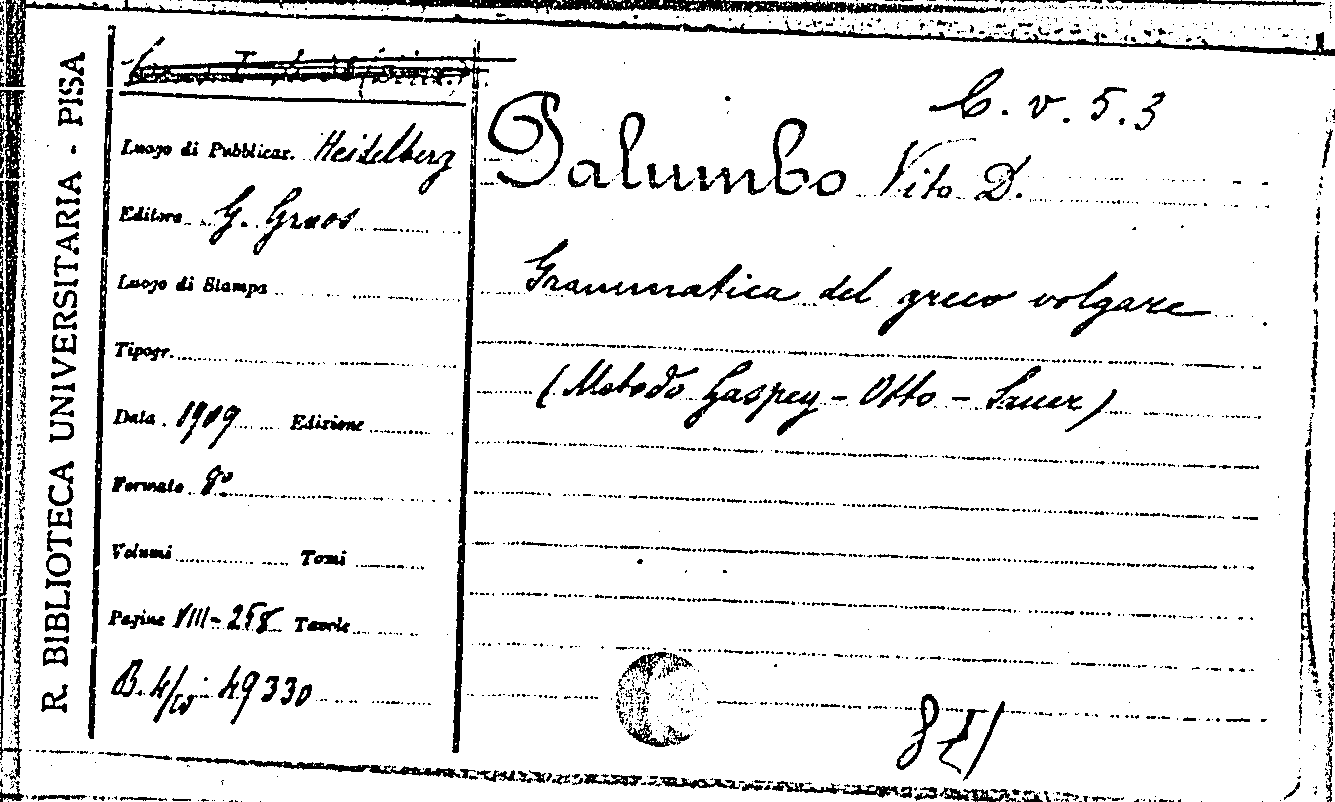 R. BIBLIOTECA UNIVERSITARIA - PISA
Luogo di Pubblicaz. Heidelberg
Editore G. Groos
Luogo di Stampa
Tipogr.
Data 1909 Edizione
Formato 8°
Volumi Tomi
Pagine VIII-258 Tavole
49330
C. v. 5. 3
Palumbo Vito D.
Grammatica del greco volgare
(Metodo Gaspey - Otto - Sauer)